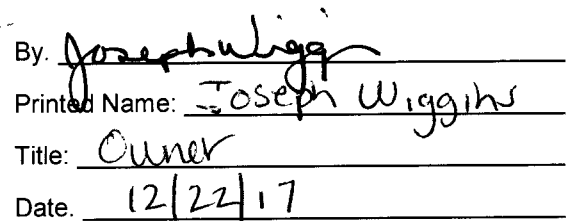 By. Joseph Wiggin
Printed Name: Joseph Wiggins
Title: Owner
Date. 12/22/17